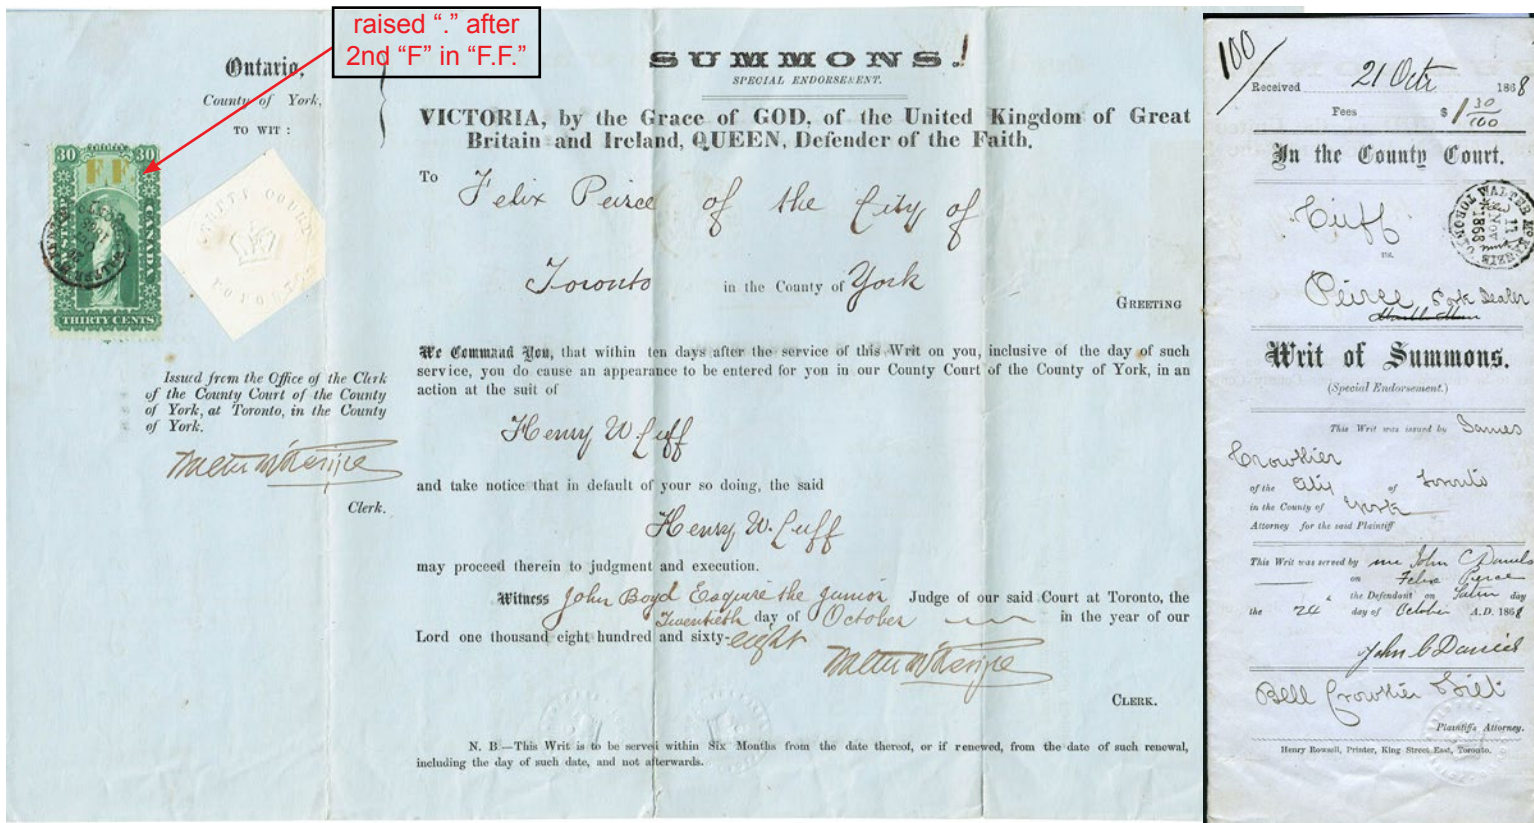 raised “.” after
2nd “F” in “F.F.”
Ontario,
County of York,
TO WIT :
30 THIRTY 30
F F
CANADA
THIRTY CENTS
COUNTY COURT
TORONTO
Issued from the Office of the Clerk
of the County Court of the County
of York, at Toronto, in the County
of York.
Clerk.
SUMMONS!
SPECIAL ENDORSEMENT.
VICTORIA, by the Grace of GOD, of the United Kingdom of Great
Britain and Ireland, QUEEN, Defender of the Faith,
To Felix Peirce of the City of
Toronto in the County of York
GREETING
We Command You, that within ten days after the service of this Writ on you, inclusive of the day of such
service, you do cause an appearance to be entered for you in our County Court of the County of York, in an
action at the suit of
Henry W. Cuff
and take notice that in default of your so doing, the said
Henry W. Cuff
may proceed therein to judgment and execution.
Witness John Boyd Esquire the Junior Judge of our said Court at Toronto, the
Twentieth day of October in the year of our
Lord one thousand eight hundred and sixty-eight
CLERK.
N. B.—This Writ is to be served within Six Months from the date thereof, or if renewed, from the date of such renewal,
including the day of such date, and not afterwards.
100/
Received 21 Octr 1868
Fees $1 30/100
In the County Court.
Cuff
vs.
Peirce Pork Dealer
WALTER McKENZIE TORONTO
11
NOV
1868
Writ of Summons.
(Special Endorsement.)
This Writ was issued by James
Crowther
of the City of Toronto
in the County of York
Attorney for the said Plaintiff
This Writ was served by me John C Daniels
on Felix Pierce
the Defendant on Satur day
the 24 day of October A.D. 1868
John C Daniels
Bell Crowther & Tilt
Plaintiff's Attorney.
Henry Rowsell, Printer, King Street East, Toronto.